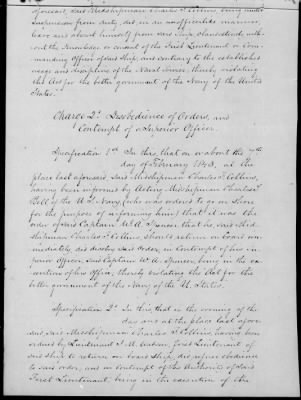 foresaid, said Midshipman Charles St. Collins, being under
suspension from duty, did, in an unofficerlike manner,
leave and absent himself from said Ship, clandestinely, with-
out the knowledge or consent of the First Lieutenant or Com-
manding Officer of said Ship, and contrary to the established
usage and discipline of the Naval Service, thereby violating
the Act for the better government of the Navy of the United
States.
Charge 2d. Disobedience of Orders, and
Contempt of a Superior Officer.
Specification 1st. In this, that on or about the
day of February 1843, at the
place last aforesaid, said Midshipman Charles St. Collins,
having been informed by Acting Midshipman Charles
Bell of the U. S. Navy, (who was ordered to go on Shore
for the purpose of so informing him) that it was the
order of said Captain W. A. Spencer, that he, said Mid-
shipman Charles St. Collins should return on board im-
mediately, did disobey said order, in Contempt of his su-
perior officer, said Captain W. A. Spencer, being in the ex-
ecution of his Office, thereby violating the Act for the
better government of the Navy of the U. States.
Specification 2d. In this, that in the evening of the
day and at the place last afore-
said, said Midshipman Charles St. Collins, having been
ordered by Lieutenant J. M. Watson, first Lieutenant of
said ship to return on board ship, did refuse obedience
to said order, and in Contempt of the Authority of said
First Lieutenant, being in the execution of the